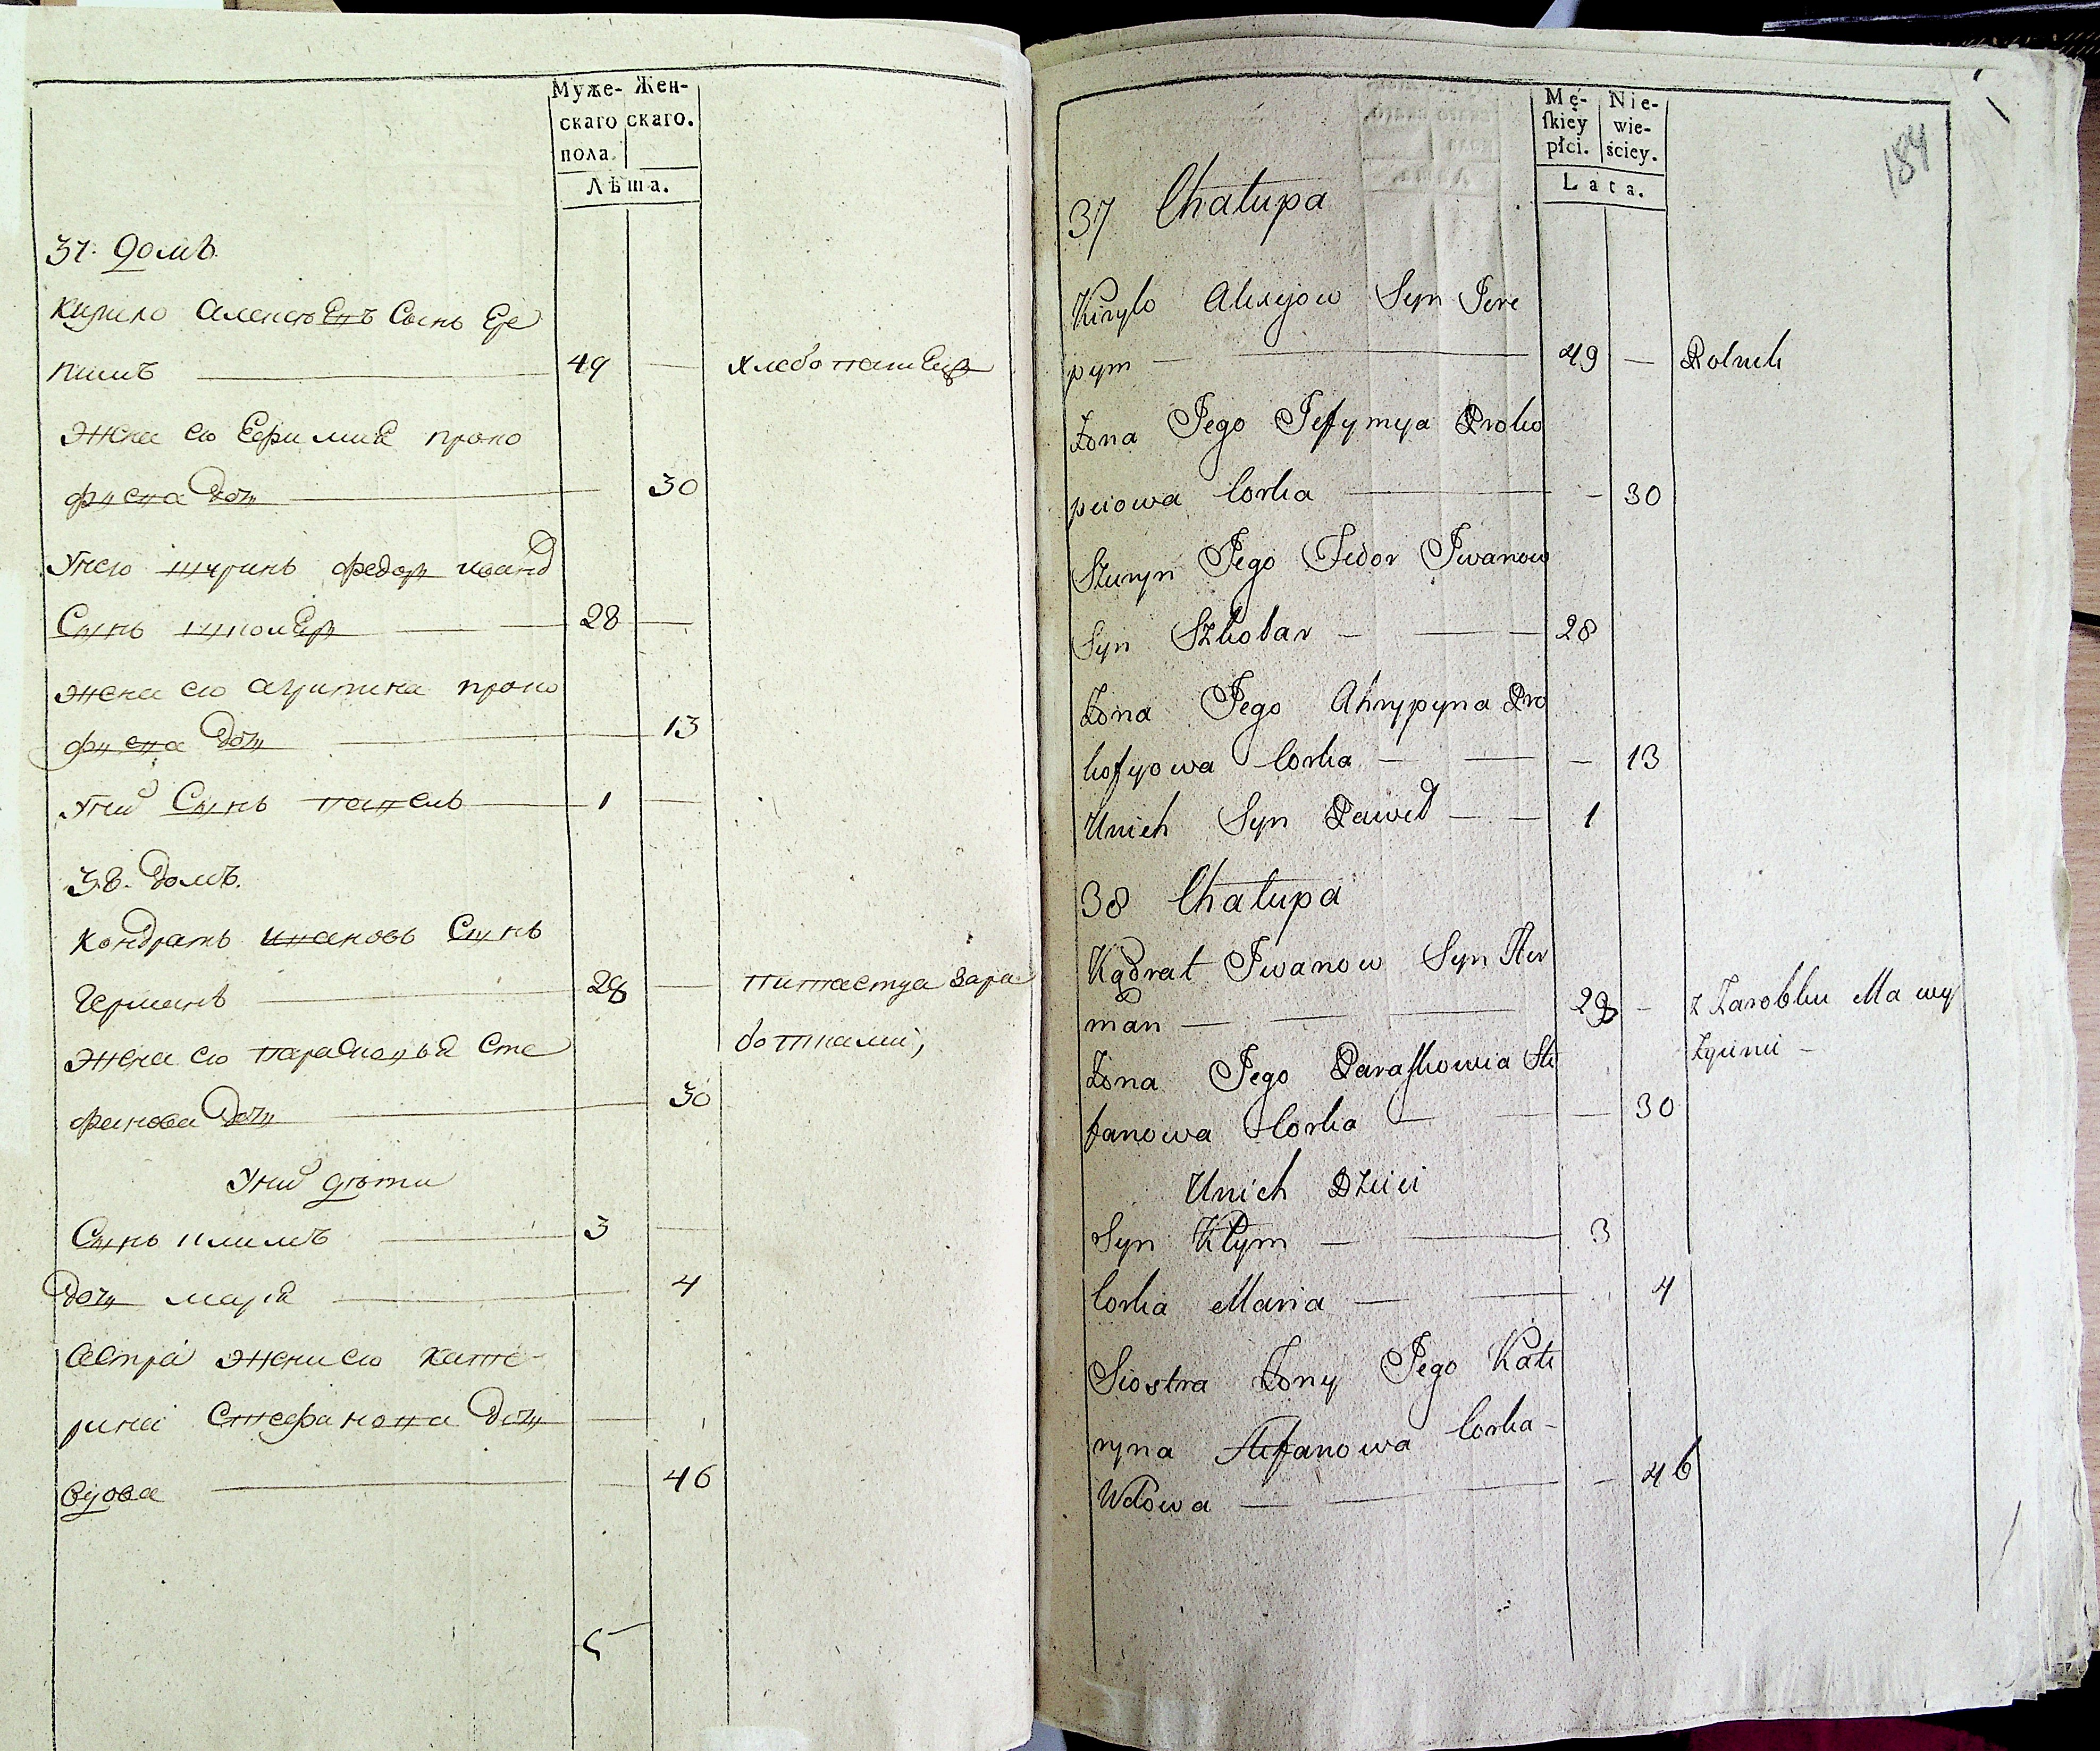 Муже- Жен-
скаго скаго.
пола.
Лѣта.
37. домъ
Кирило Алексѣевъ Сынъ Ере
пимъ 49 — хлебопашецъ
жена его Ефимия проко
фиева дочь 30
Унего шуринъ федоръ ивановъ
Сынъ 28 —
жена его агрипина проко
фиева дочь 13
Уних Сынъ павелъ 1 —
38. домъ.
Кондратъ ивановъ Сынъ
Германъ 28 — питается зара
жена его парасковья Сте ботками,
фанова дочь 30
Уних дѣти
Сынъ климъ 3 —
дочь мария 4
Сестра жени его кате-
рина Стефанова дочь —
вдова 46
5
184
Mę- Nie-
ſkiey wie-
płci. ściey.
Lata.
37 Chałupa
Kiryło Alexyjow Syn Jere
pym — 49 — Rolnik
Żona Jego Jefymya Proko
piowa Corka — 30
Szuryn Jego Fedor Jwanow
Syn Szkolar — 28
Żona Jego Ahrypyna Pro
kofyowa Corka — 13
Unich Syn Paweł — 1
38 Chałupa
Kądrat Jwanow Syn Her
man — 28 — z Zarobku Ma wy
Żona Jego Paraſkowia Ste Żywnie —
fanowa Corka — 30
Unich Dzieci
Syn Kłym — 3
Corka Maria — 4
Siostra Żony Jego Kate
ryna Stefanowa Corka —
Wdowa — 46